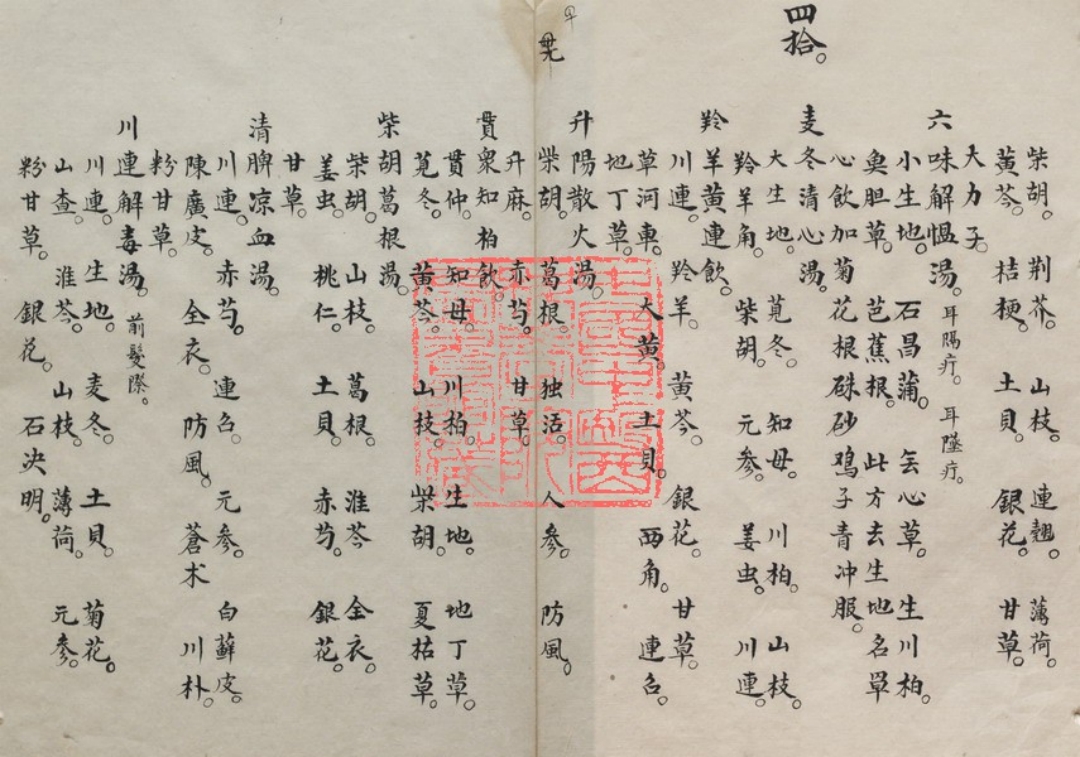 四拾。
柴胡。荆芥。山枝。連翹。薄荷。
黄芩。桔梗。土貝。銀花。甘草。
大力子。
六味解愠湯。耳陽疔。耳墜疔。
小生地。石昌蒲。心草。生川柏。
奐胆草。芭蕉根。此方去生地名單
心飲加菊花根硃砂鸡子青冲服。
麦冬清心湯。
大生地。莧冬。知母。川柏。山枝。
羚羊角。柴胡。元參。姜虫。川連。
羚羊黄連飲。
川連。羚羊。黄芩。銀花。甘草。
草河車。大黄。土貝。西角。連召。
地丁草。
升陽散火湯。
柴胡。葛根。独活。人參。防風。
升麻。赤芍。甘草。
貫衆知柏飲。
貫仲。知母。川柏。生地。地丁草。
莧冬。黄芩。山枝。柴胡。夏枯草。
柴胡葛根湯。
柴胡。山枝。葛根。淮芩。全衣。
姜虫。桃仁。土貝。赤芍。銀花。
甘草。
清脾凉血湯。
川連。赤芍。連召。元參。白蘚皮。
陳廣皮。全衣。防風。蒼术 川朴。
粉甘草。
川連解毒湯。前髮際。
川連。生地。麦冬。土貝。菊花。
山查。淮芩。山枝。薄荷。元參。
粉甘草。銀花。石决明。